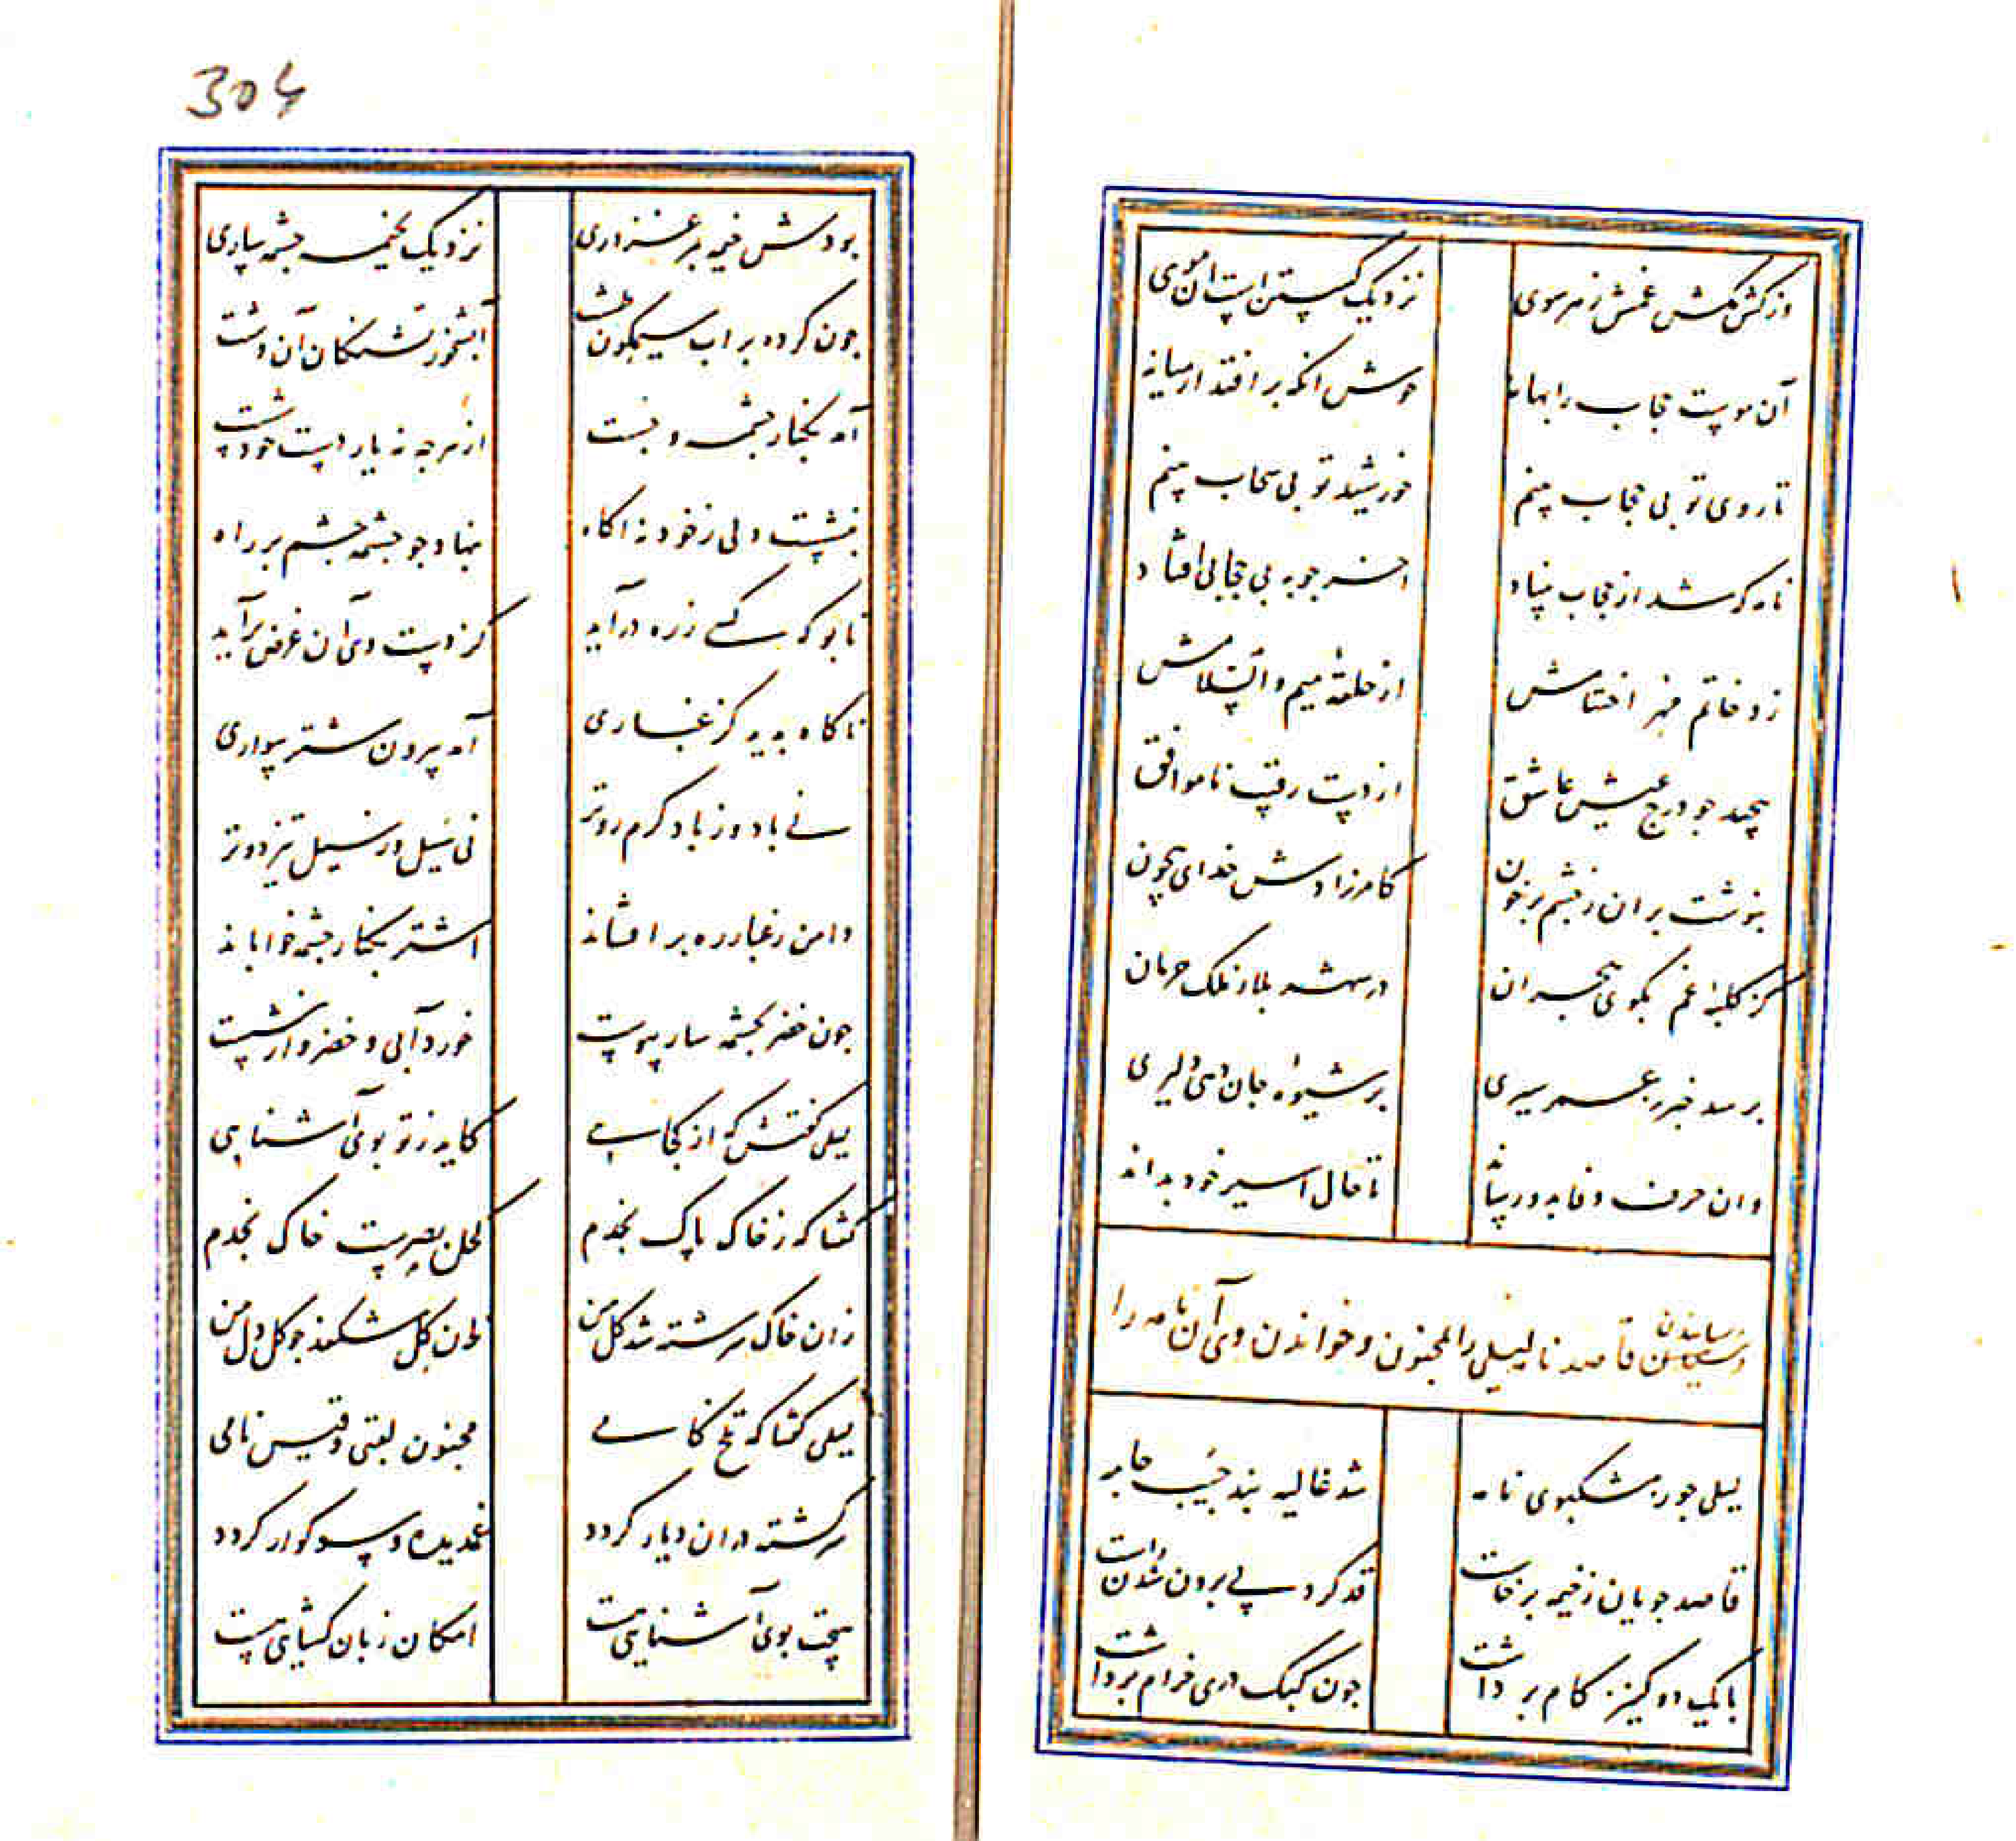 وز کش مکش غمش ز هر سوی نزدیک کسستن است ان موی
آن موست حجاب را بهانه خوش انکه بر افتد از میانه
تا روی تو بی حجاب بینم خورشید تو بی سحاب بینم
نامه که شد از حجاب بنیاد اخر چو به بی حجابی افتاد
زد خاتم مهر اختتامش از حلقهٔ میم والسلامش
پیچید چو درج عیش عاشق از دست رقیب ناموافق
بنوشت بران ز چشم پر خون کامرزادش خدای بیچون
کز کلبهٔ غم بکوی هجران در شهر بلا ز ملک حرمان
پرسد خبر ز عمر سیری بر شیوه جان دهی دلیری
وان حرف وفا بدو رساند تا حال اسیر خود بداند
رسانیدن قاصد نامه لیلی را بمجنون و خواندن وی آن نامه را
لیلی چو ز مشکبوی نامه شد غالیه بند جیب جامه
قاصد جویان ز خیمه برخاست قد کرد پی برون شدن راست
با یک دو کنیز کام برداشت چون کبک دری خرام برداشت
304
بودش خیمه بمرغزاری نزدیک بخیمه چشمه ساری
چون کرده بر اب سیمکون طشت آبشخور تشنکان آن دشت
آمد بکنار چشمه و نشست از هر چه نه یار دست خود شست
بنشست ولی ز خود نه اکاه بنهاد چو چشمه چشم بر راه
تا بو که کسی ز ره در آید کز دست وی آن غرض بر آید
ناکاه بدید کز غباری آمد بیرون شتر سواری
نی باد و ز باد کرم روتر نی سیل و ز سیل تیز دوتر
دامن ز غبار ره برافشاند اشتر بکنار چشمه خواباند
چون خضر بچشمه سار پیوست خورد آبی و خضروار نشست
لیلی کفتش که از کجایی کاید ز تو بوی آشنایی
کفتا که ز خاک پاک نجدم کحل بصرست خاک نجدم
زان خاک سرشته شد کل من زان کل شکفد چو کل دل من
لیلی کفتا که تلخ کامی مجنون لقبی و قیس نامی
سرکشته دران دیار کردد غمدیده و سوکوار کردد
هیچت بوی آشنایی هست امکان زبان کشایی هست